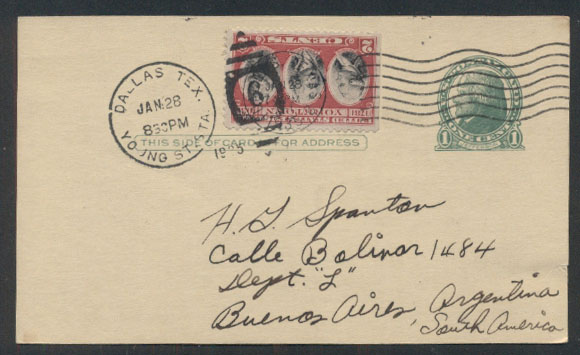 DALLAS TEX.
JAN 28
830PM
YOUNG ST. STA.
2 CENTS 2
YORKTOWN
1781
THIS SIDE OF CARD IS FOR ADDRESS
1 ONE CENT 1
H. T. Spanton
Calle Bolivar 1484
Dept. "L"
Buenos Aires, Argentina
South America